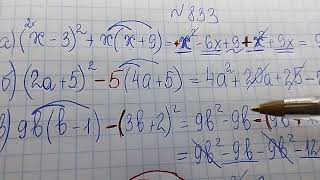 № 833
а) (x-3)² + x(x+9) = x² - 6x + 9 + x² + 9x =
б) (2a+5)² - 5(4a+5) = 4a² + 20a + 25 -
в) 9b(b-1) - (3b+2)² = 9b² - 9b - (9b²
= 9b² - 9b - 9b² - 12